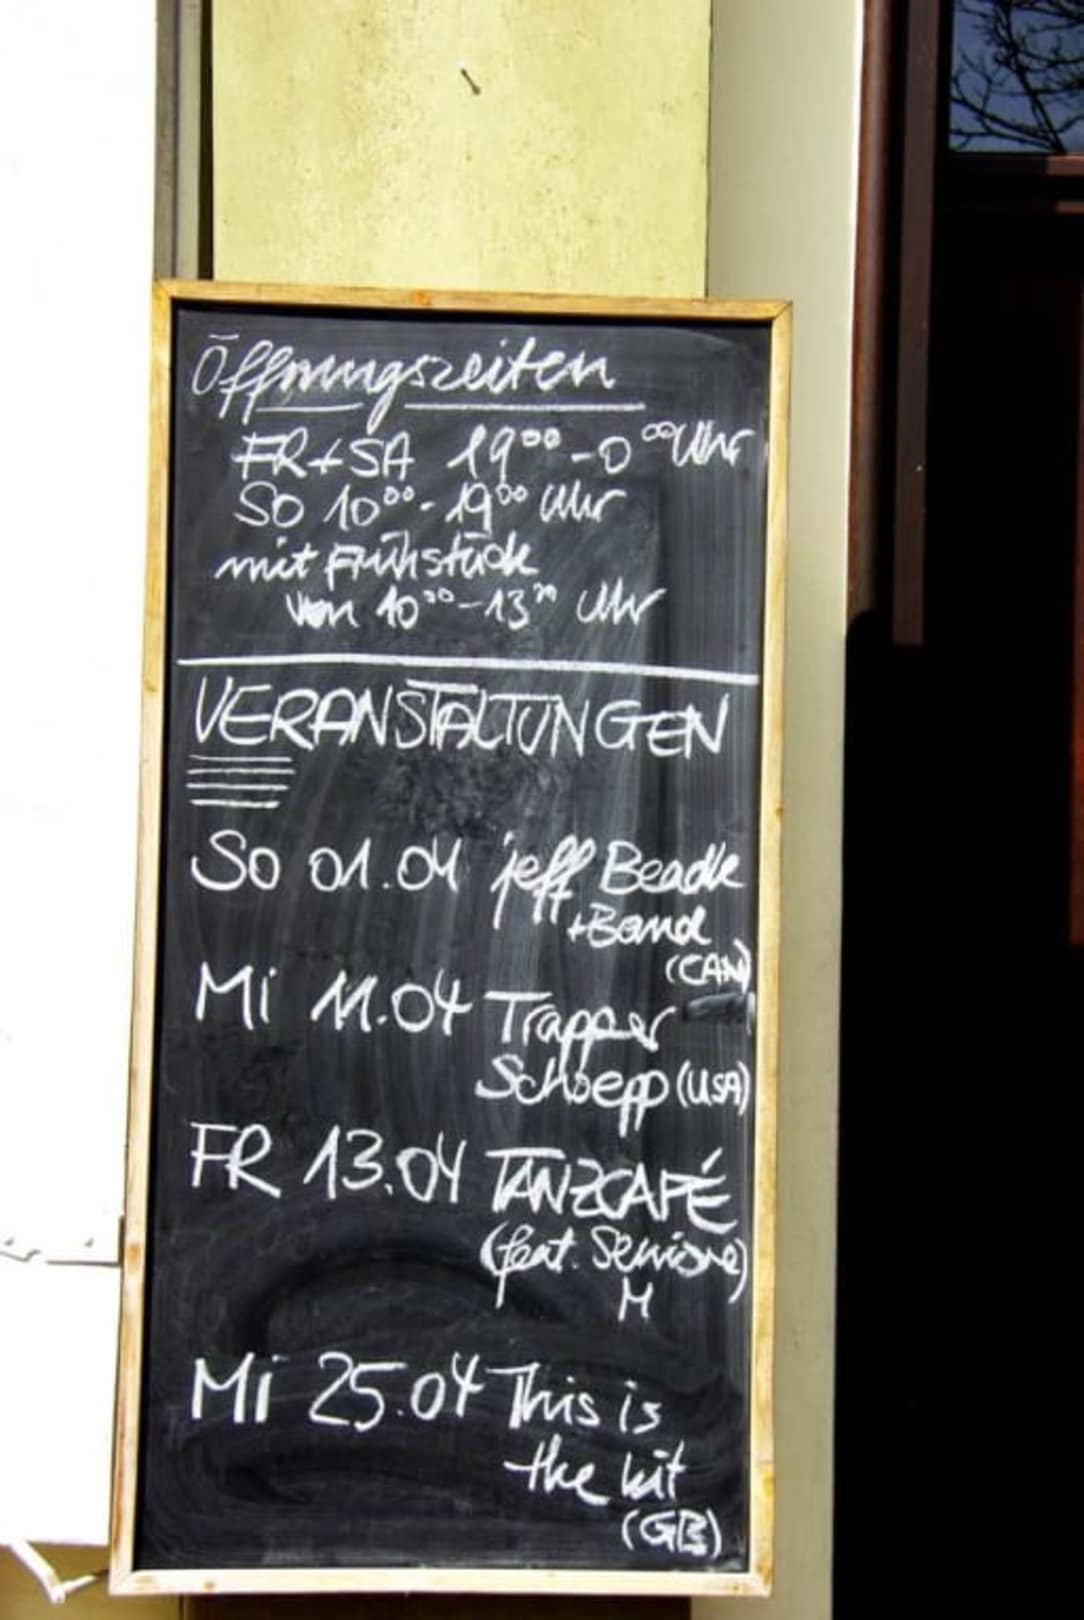 Öffnungszeiten
FR+SA 19⁰⁰-0⁰⁰Uhr
So 10⁰⁰-19⁰⁰ Uhr
mit Frühstück
von 10⁰⁰-13³⁰ Uhr
VERANSTALTUNGEN
So 01.04 jeff Beadle
+Band
(CAN)
Mi 11.04 Trapper
Schoepp (USA)
FR 13.04 TANZCAFÉ
(feat. Seniore)
M
Mi 25.04 This is
the kit
(GB)